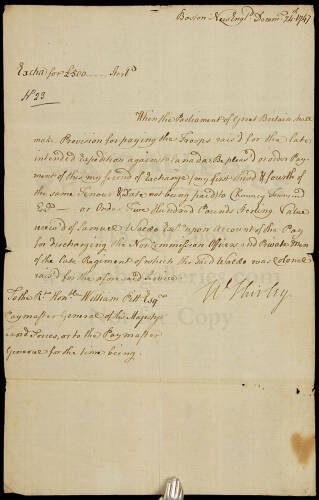 Boston New Engld. Decemr. 24th. 1747
Excha. for £500 Sterlg.
No 23
When the Parliament of Great Britain shall
make Provision for paying the Troops rais'd for the late
intended Expedition against Canada Be pleas'd to order Pay-
ment of this my second of Exchange (my first third & fourth of
the same Tenour & Date not being paid) to Chauncy Townsend
Esqr or Order Five Hundred Pounds Sterling Value
receiv'd of Samuel Waldo Esqr. upon Account of the Pay
for discharging the Non Commission Officers and Private Men
of the late Regiment of which the said Waldo was Colonel
rais'd for the aforesaid Service
W Shirley
To the Rt. Honble. William Pitt Esqr.
Paymaster General of his Majestys
Land Forces, or to the Paymaster
General for the time being.
galleries.com
Copy